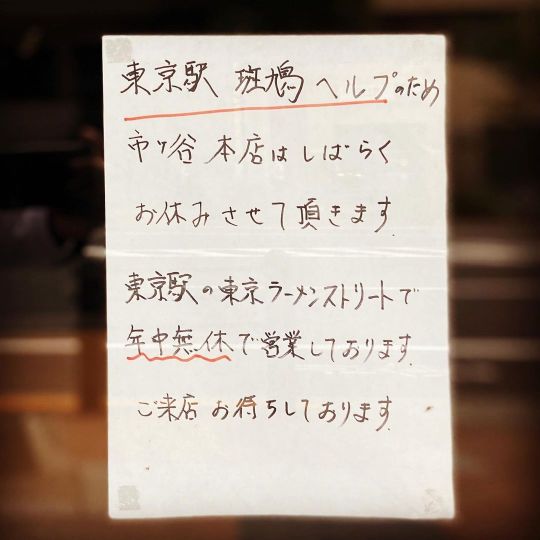 東京駅 斑鳩 ヘルプのため
市ヶ谷 本店はしばらく
お休みさせて頂きます.
東京駅の東京ラーメンストリートで
年中無休で営業しております.
ご来店 お待ちしております.